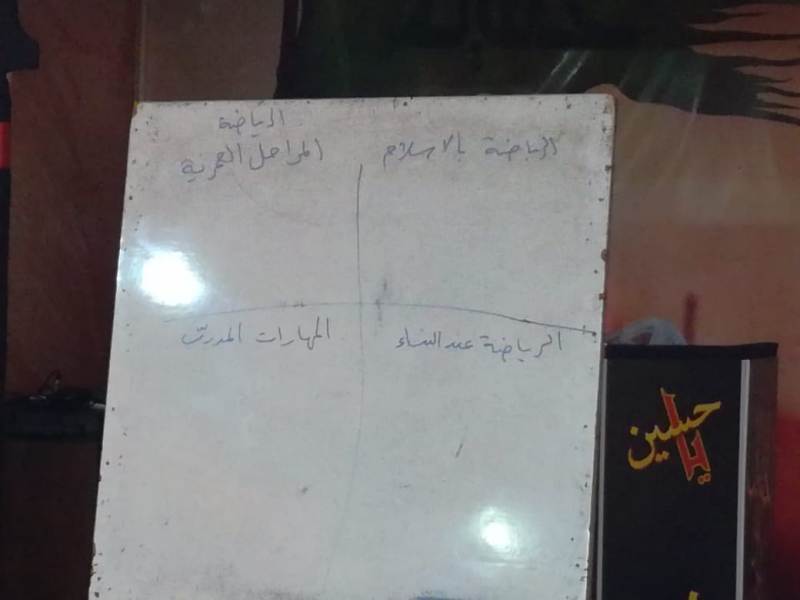 الرياضة بالاسلام
الرياضة
المراحل العمرية
الرياضة عند النساء
المهارات
يا حسين